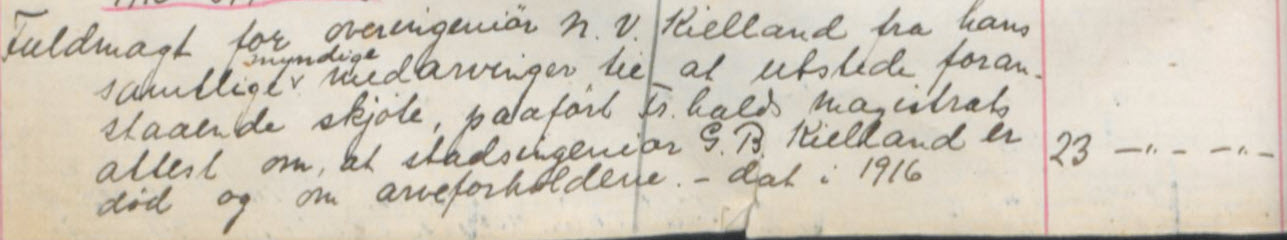 Fuldmagt for overingeniör N. V. Kielland fra hans
samtlige myndige medarvinger til at utstede foran-
staaende skjöte, paafört Fr.halds magistrats
attest om, at stadsingeniör G. B. Kielland er
död og om arveforholdene. - dat i 1916
23 -"- -"-